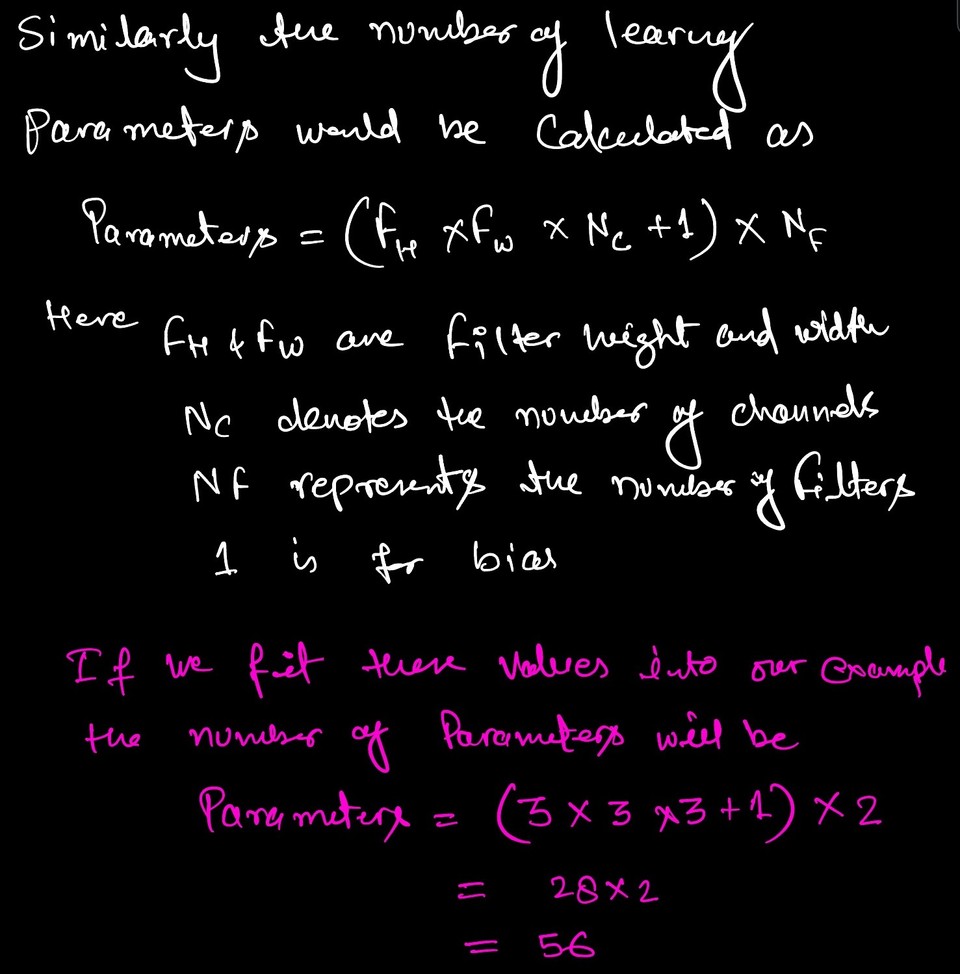 Similarly the number of learng
Parameters would be Calculated as
Parameters = (F_H × F_W × N_C + 1) × N_F
Here F_H & F_W are filter height and width
N_C denotes the number of channels
NF represents the number of filters
1 is for bias
If we fit these values into our example
the number of Parameters will be
Parameters = (3 × 3 × 3 + 1) × 2
= 28 × 2
= 56